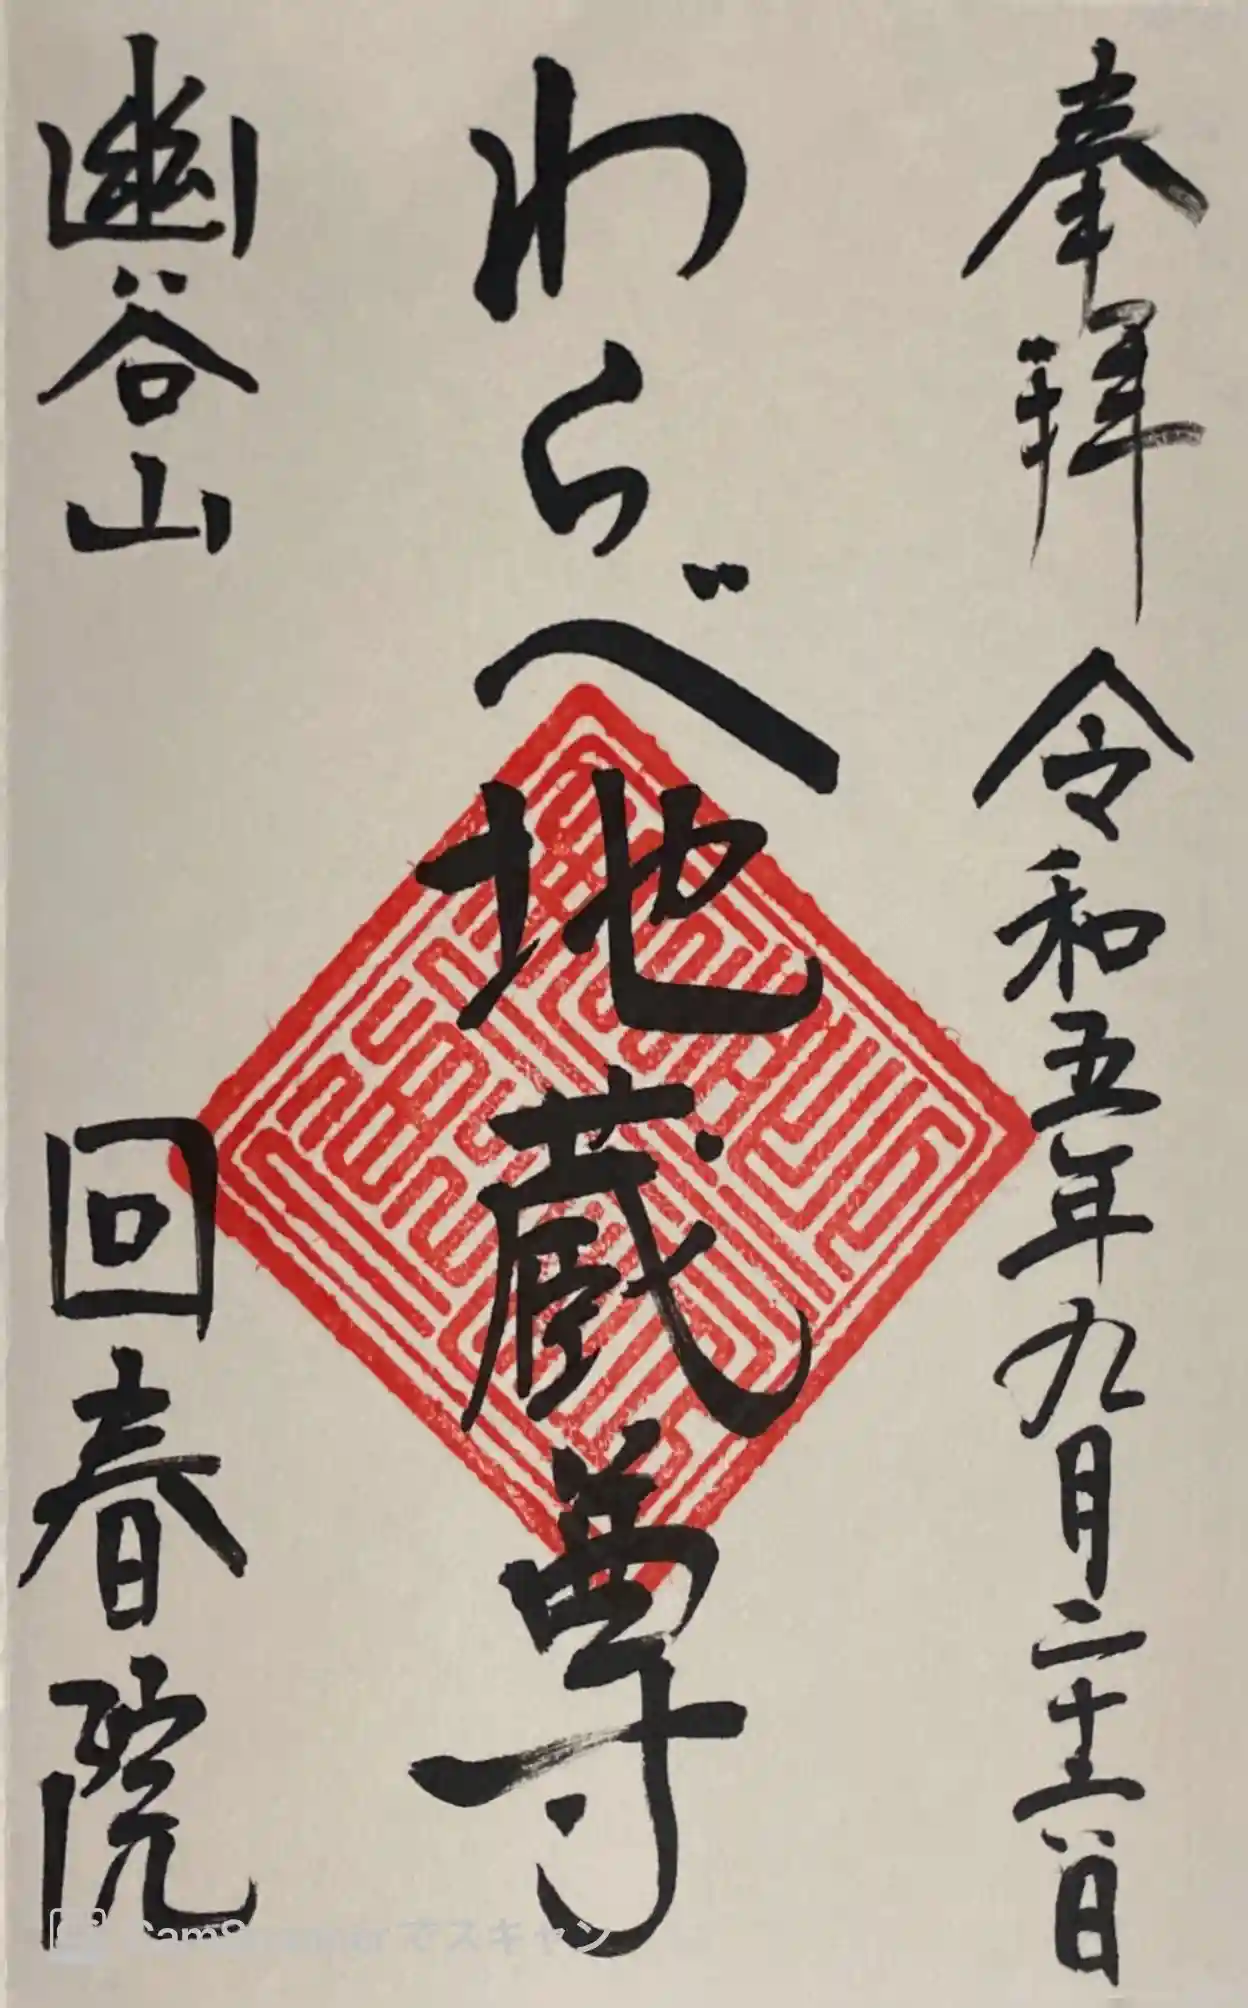 奉拝 令和五年九月二十六日
わらべ地蔵尊
幽谷山 回春院
CamScannerでスキャン